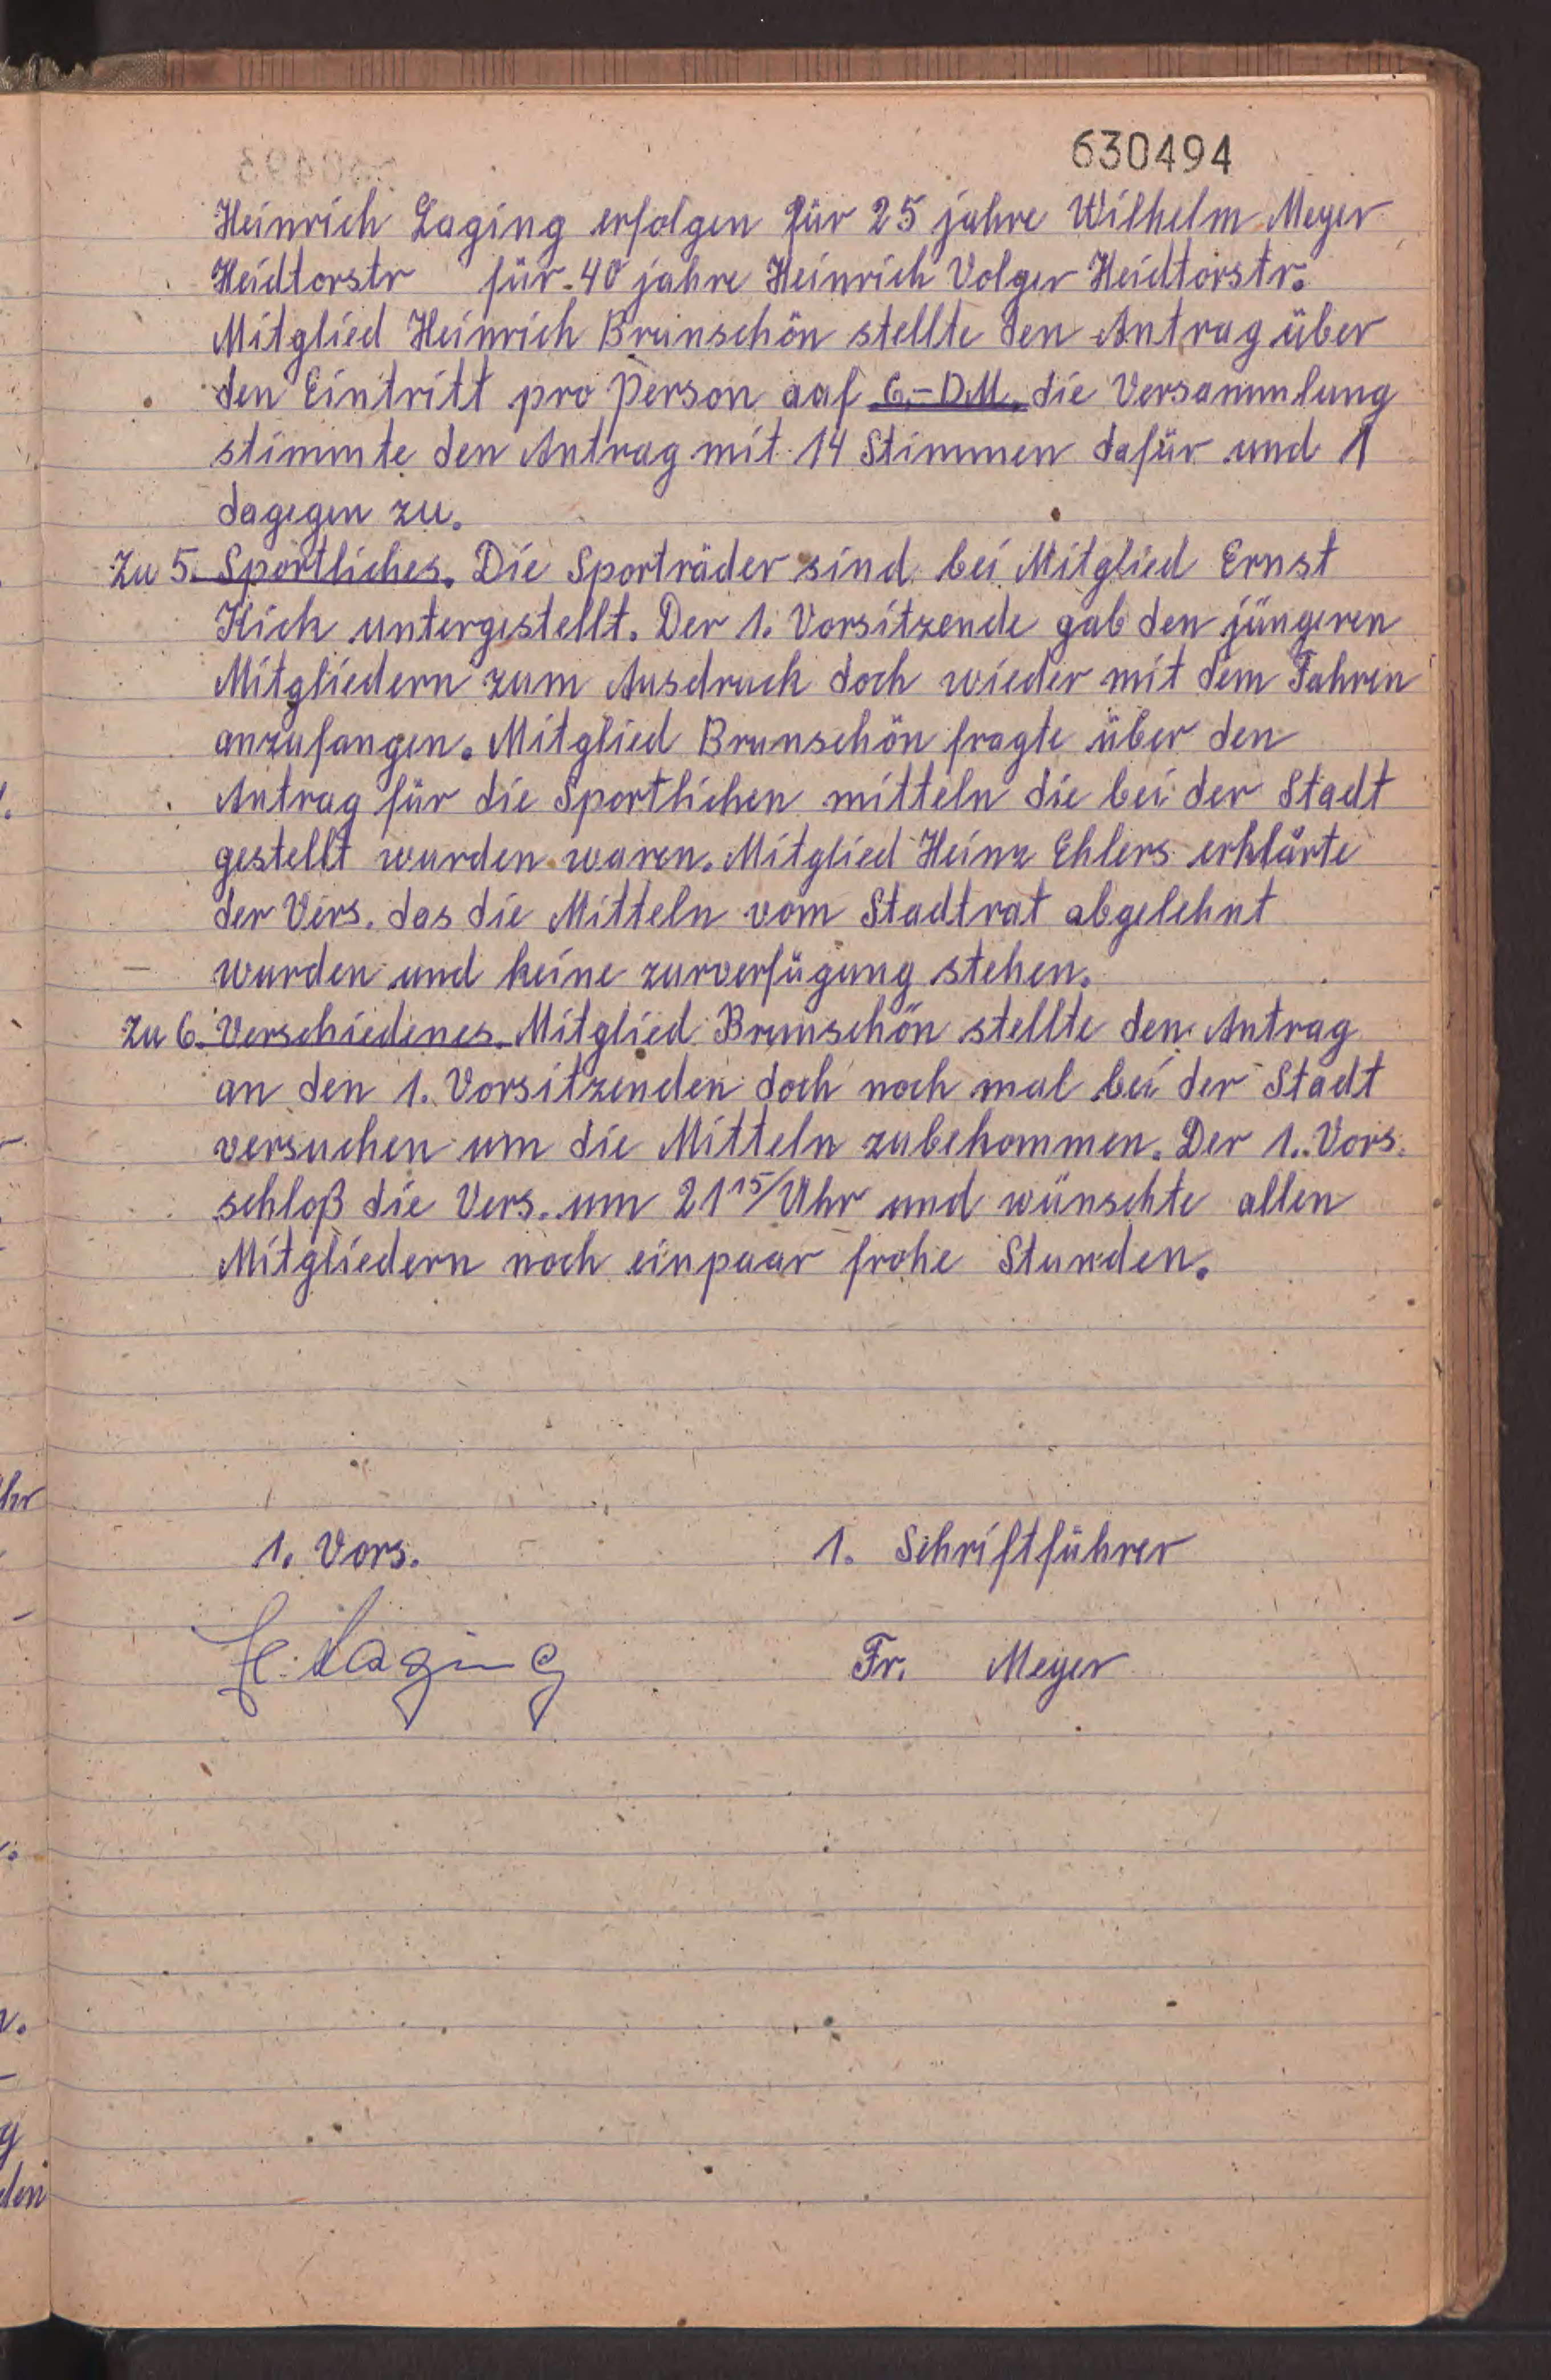 630494
Heinrich Laging erfolgen für 25 jahre Wilhelm Meyer
Heidtorstr für 40 jahre Heinrich Volger Heidtorstr.
Mitglied Heinrich Brunschön stellte den Antrag über
den Eintritt pro Person auf 6,- DM. die Versammlung
stimmte den Antrag mit 14 Stimmen dafür und 1
dagegen zu.
Zu 5. Sportliches. Die Sporträder sind bei Mitglied Ernst
Kich untergestellt. Der 1. Vorsitzende gab den jüngeren
Mitgliedern zum Ausdruck doch wieder mit dem Fahren
anzufangen. Mitglied Brunschön fragte über den
Antrag für die Sportlichen mitteln die bei der Stadt
gestellt wurden waren. Mitglied Heinz Ehlers erklärte
der Vers. das die Mitteln vom Stadtrat abgelehnt
wurden und keine zurverfügung stehen.
Zu 6. Verschiedenes. Mitglied Brunschön stellte den Antrag
an den 1. Vorsitzenden doch noch mal bei der Stadt
versuchen um die Mitteln zubekommen. Der 1. Vors.
schloß die Vers. um 21 15/ Uhr und wünschte allen
Mitgliedern noch einpaar frohe Stunden.
1. Vors. 1. Schriftführer
H. Laging Fr. Meyer